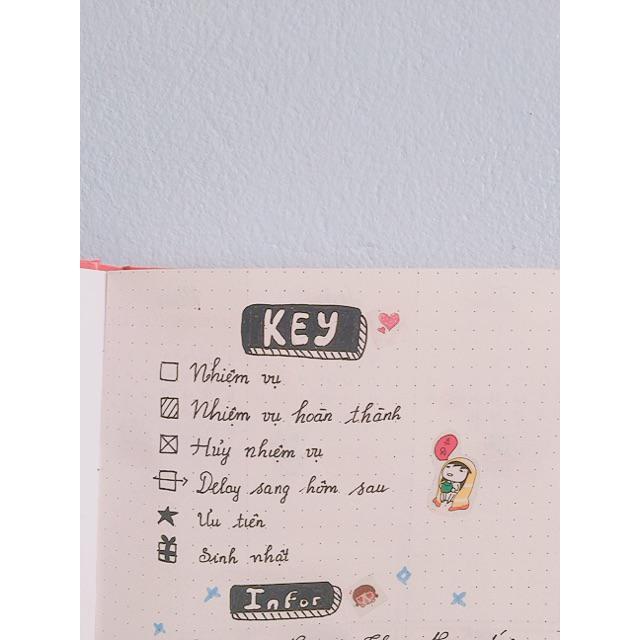 KEY
Nhiệm vụ
Nhiệm vụ hoàn thành
Hủy nhiệm vụ
Delay sang hôm sau
Ưu tiên
Sinh nhật
Infor